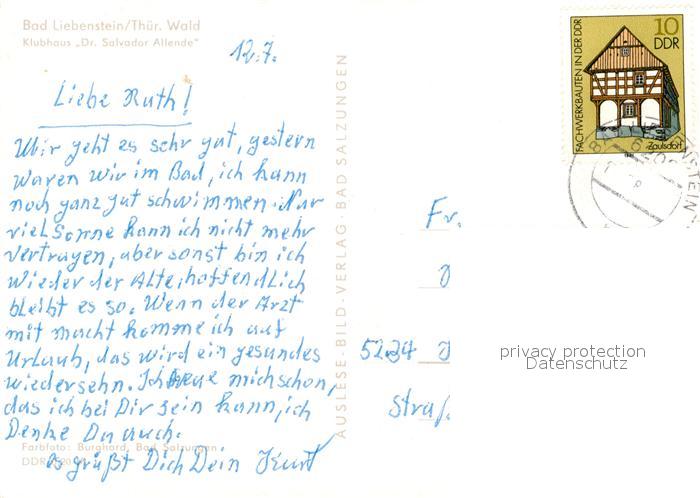 Bad Liebenstein/Thür. Wald
Klubhaus „Dr. Salvador Allende"
12.7.
Liebe Ruth!
Mir geht es sehr gut, gestern
waren wir im Bad, ich kann
noch ganz gut schwimmen. Nur
viel Sonne kann ich nicht mehr
vertragen, aber sonst bin ich
wieder der Alte, hoffendlich
bleibt es so. Wenn der Arzt
mit macht komme ich auf
Urlaub, das wird ein gesundes
wiedersehn. Ich freue mich schon,
das ich bei Dir sein kann, ich
Denke Du auch.
es grüßt Dich Dein Kurt
Farbfoto: Burghard, Bad Salzungen
DDR
AUSLESE-BILD-VERLAG · BAD SALZUNGEN
FACHWERKBAUTEN IN DER DDR
10
DDR
Zaulsdorf
Fr.
J
5234 J
Straß.
privacy protection
Datenschutz